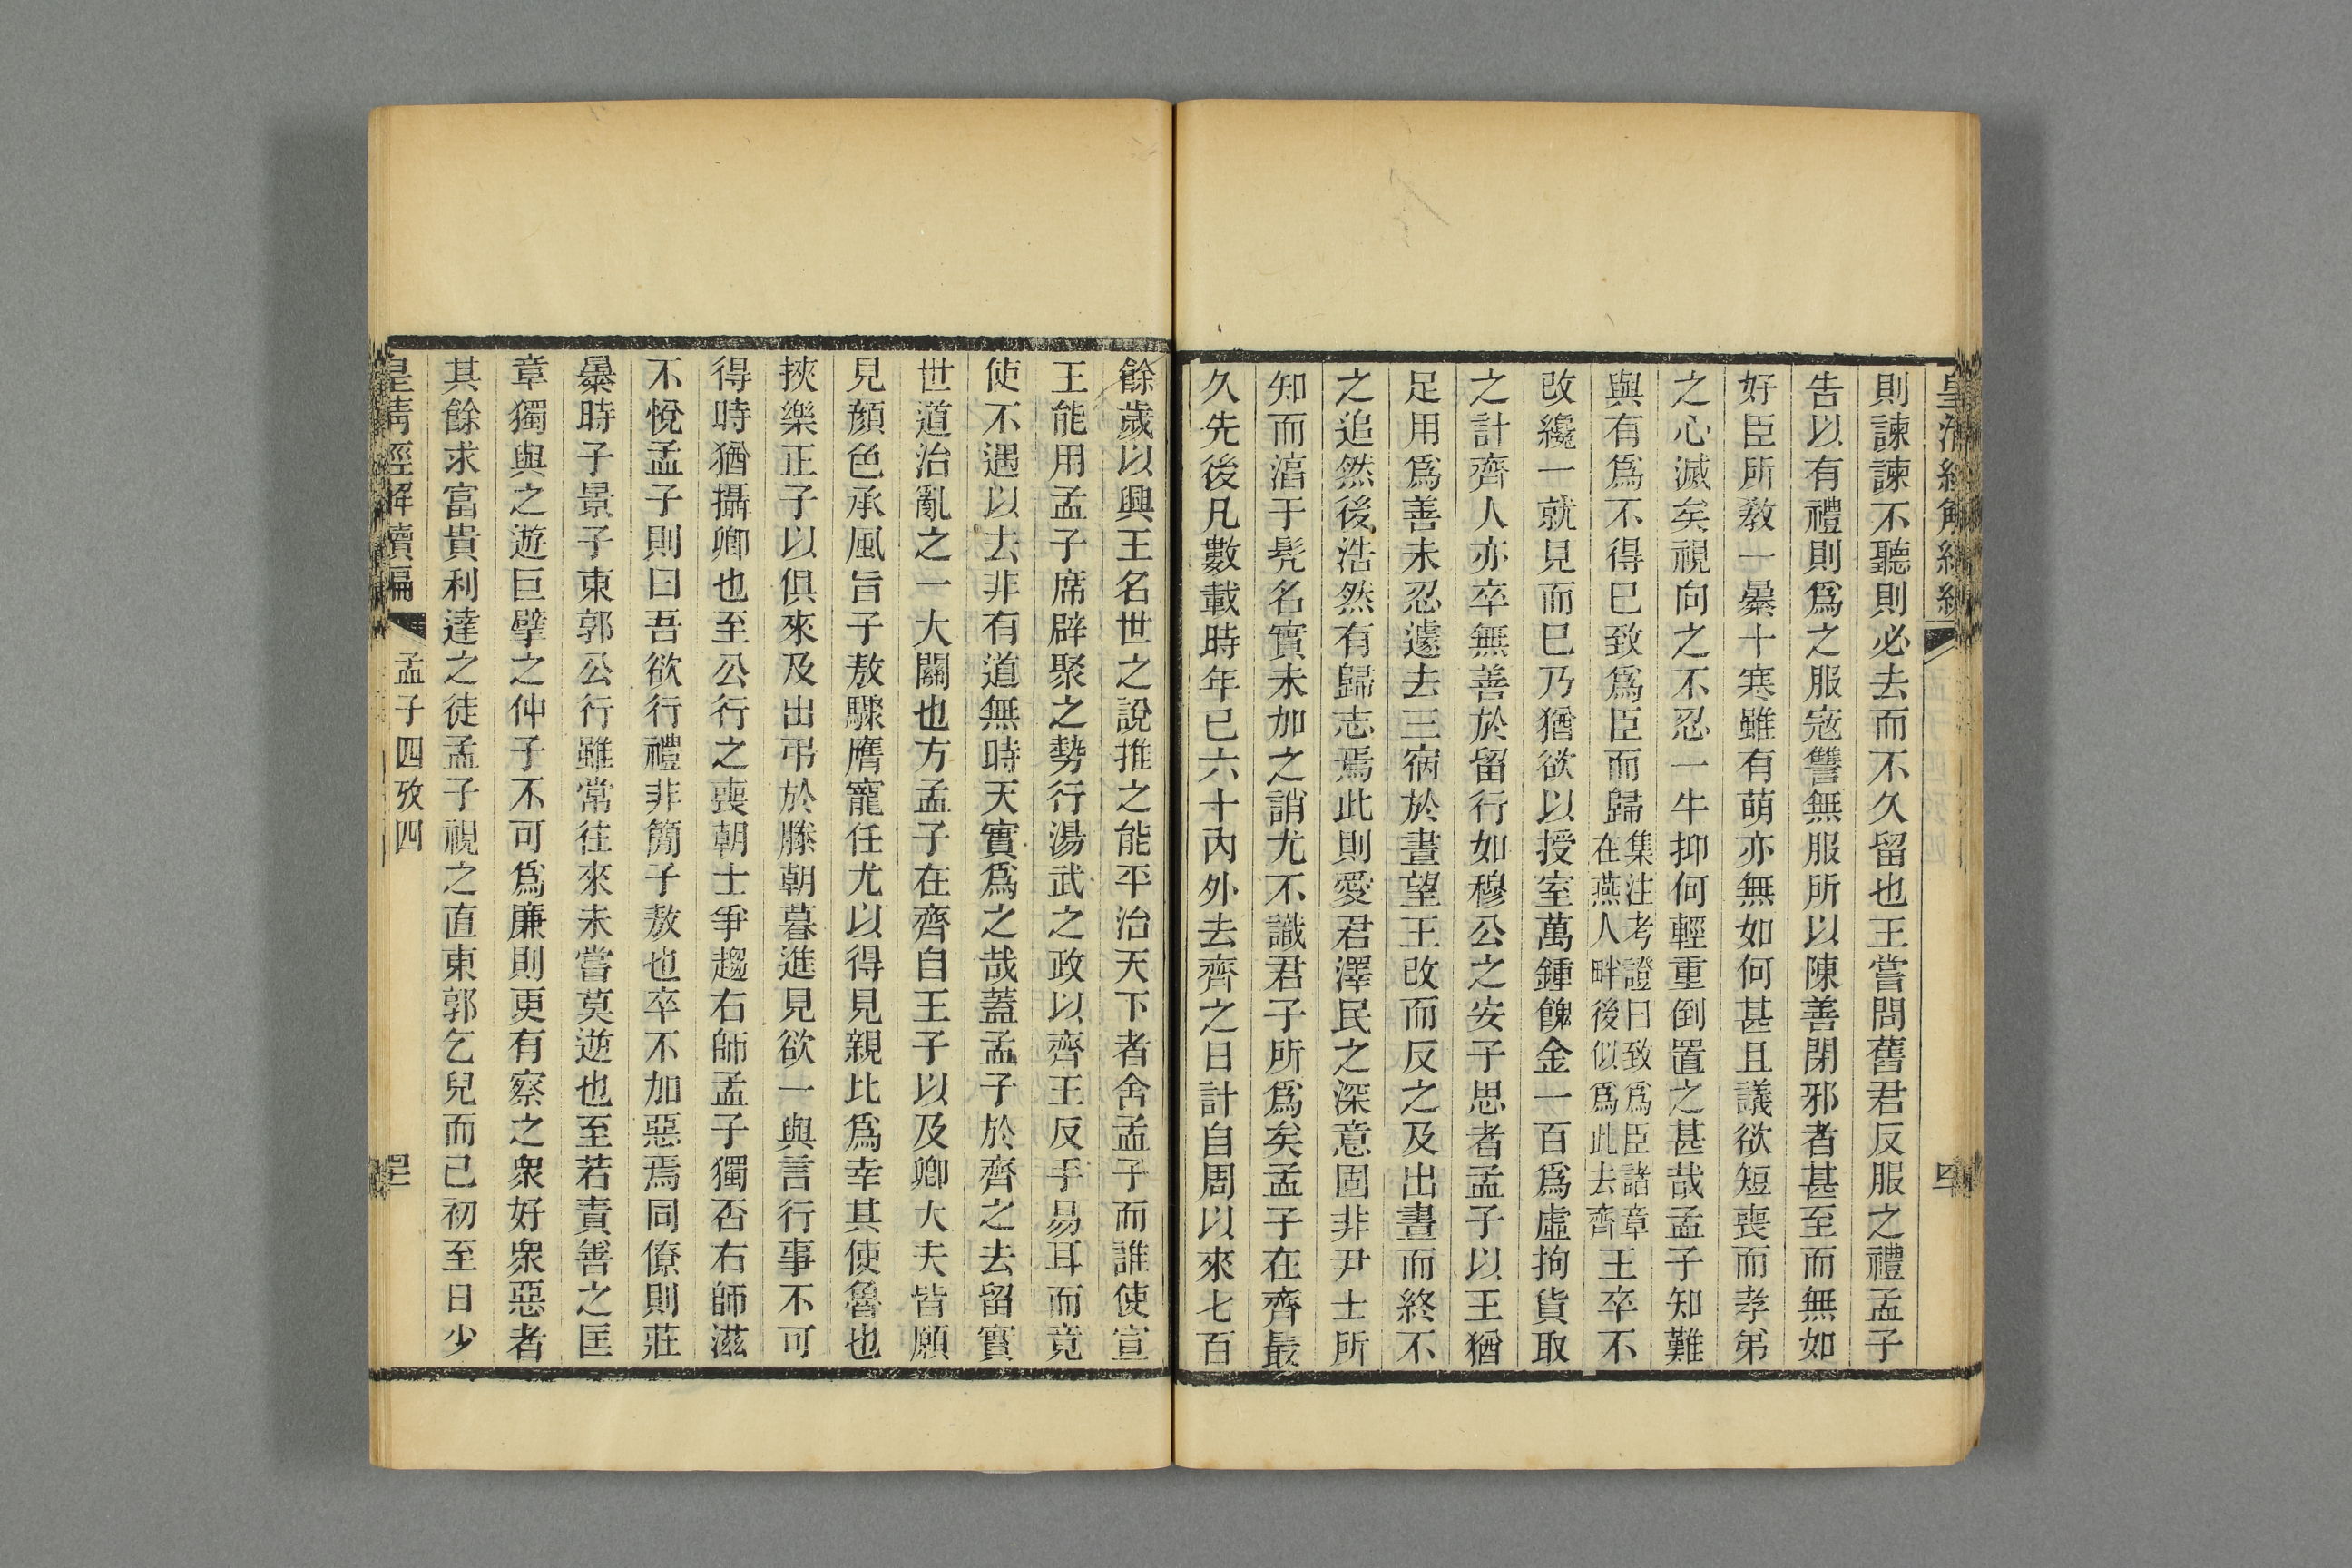 則諫諫不聽則必去而不久留也王嘗問舊君反服之禮孟子
告以有禮則爲之服寇讐無服所以陳善閉邪者甚至而無如
好臣所教一㬥十寒雖有萌亦無如何甚且議欲短喪而孝弟
之心滅矣視向之不忍一牛抑何輕重倒置之甚哉孟子知難
與有爲不得已致爲臣而歸集注考證曰致爲臣諸章在燕人畔後似爲此去齊王卒不
改纔一就見而已乃猶欲以授室萬鍾餽金一百爲虛拘貨取
之計齊人亦卒無善於留行如穆公之安子思者孟子以王猶
足用爲善未忍遽去三宿於晝望王改而反之及出晝而終不
之追然後浩然有歸志焉此則愛君澤民之深意固非尹士所
知而淳于髡名實未加之誚尤不識君子所爲矣孟子在齊最
久先後凡數載時年已六十內外去齊之日計自周以來七百
餘歲以興王名世之說推之能平治天下者舍孟子而誰使宣
王能用孟子席辟聚之勢行湯武之政以齊王反手易耳而竟
使不遇以去非有道無時天實爲之哉蓋孟子於齊之去留實
世道治亂之一大關也方孟子在齊自王子以及卿大夫皆願
見顏色承風旨子敖驟膺寵任尤以得見親比爲幸其使魯也
挾樂正子以俱來及出弔於滕朝暮進見欲一與言行事不可
得時猶攝卿也至公行之喪朝士爭趨右師孟子獨否右師滋
不悅孟子則曰吾欲行禮非簡子敖也卒不加惡焉同僚則莊
㬥時子景子東郭公行雖常往來未嘗莫逆也至若責善之匡
章獨與之遊巨擘之仲子不可爲廉則更有察之衆好衆惡者
其餘求富貴利達之徒孟子視之直東郭乞兒而已初至日少
皇清經解續編
孟子四攷四